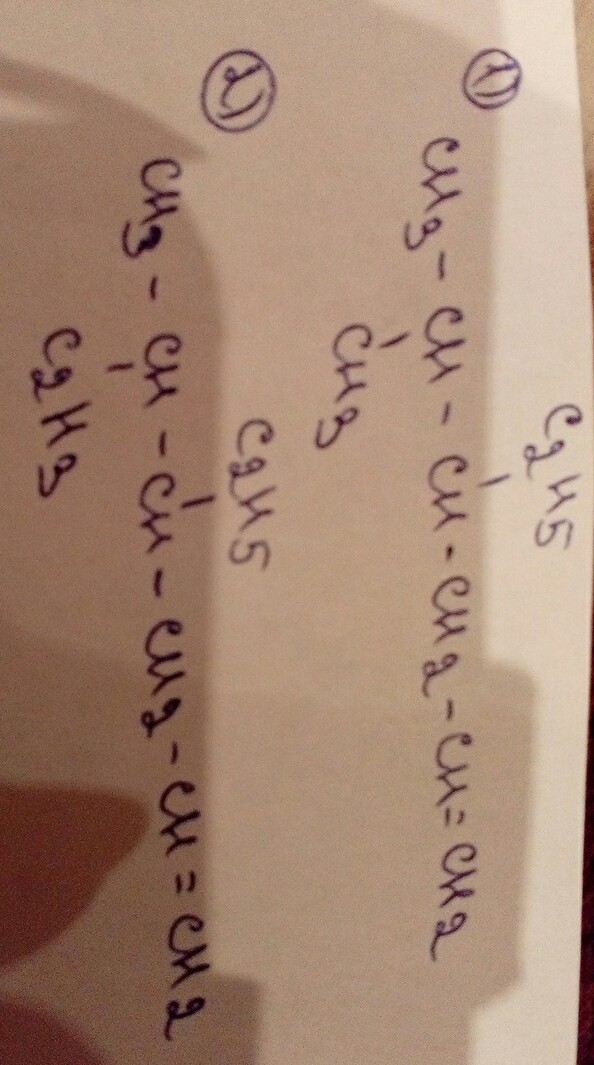 1)
C2H5
CH3 - CH - CH - CH2 - CH = CH2
CH3
2)
C2H5
CH3 - CH - CH - CH2 - CH = CH2
C2H3